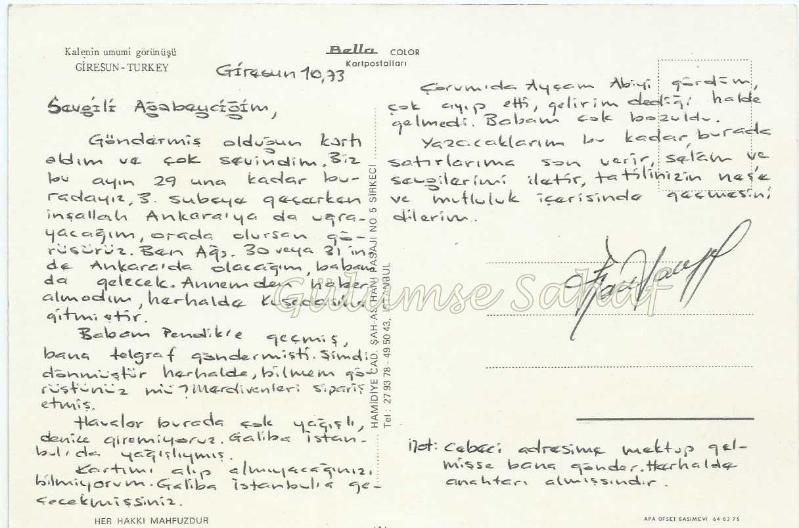 Kalenin umumi görünüşü
GİRESUN-TURKEY
Bella COLOR
Kartpostalları
Giresun 10,73
Sevgili Ağabeyciğim,
Göndermiş olduğun kartı
aldım ve çok sevindim. Biz
bu ayın 29 una kadar bu-
radayız, 3. şubeye geçerken
inşallah Ankara'ya da uğra-
yacağım, orada olursan gö-
rüşürüz. Ben Ağs. 30 veya 31 in
de Ankara'da olacağım, babam
da gelecek. Annemden haber
almadım, herhalde Kuşadasına
gitmiştir.
Babam Pendik'e geçmiş,
bana telgraf göndermişti. Şimdi
dönmüştür herhalde, bilmem gö-
rüştünüz mü? Merdivenleri sipariş
etmiş.
Havalar burada çok yağışlı,
denize giremiyoruz. Galiba İstan-
bul'da yağışlıymış.
Kartımı alıp almıyacağınızı
bilmiyorum. Galiba İstanbul'a ge-
çecekmişsiniz.
HER HAKKI MAHFUZDUR
HAMİDİYE CAD. ŞAH-AS HAN PASAJI NO. 5 SİRKECİ
Tel: 27 93 78 - 49 50 43, İSTANBUL
Çorum'da Ayşam Abiyi gördüm,
çok ayıp etti, gelirim dediği halde
gelmedi. Babam çok bozuldu.
Yazacaklarım bu kadar, burada
satırlarıma son verir, selâm ve
sevgilerimi iletir, tatilinizin neş'e
ve mutluluk içerisinde geçmesini
dilerim.
Gülümse Sahaf
Not: Cebeci adresime mektup gel-
mişse bana gönder. Herhalde
anahtarı almışsındır.
APA OFSET BASIMEVİ 64 03 75